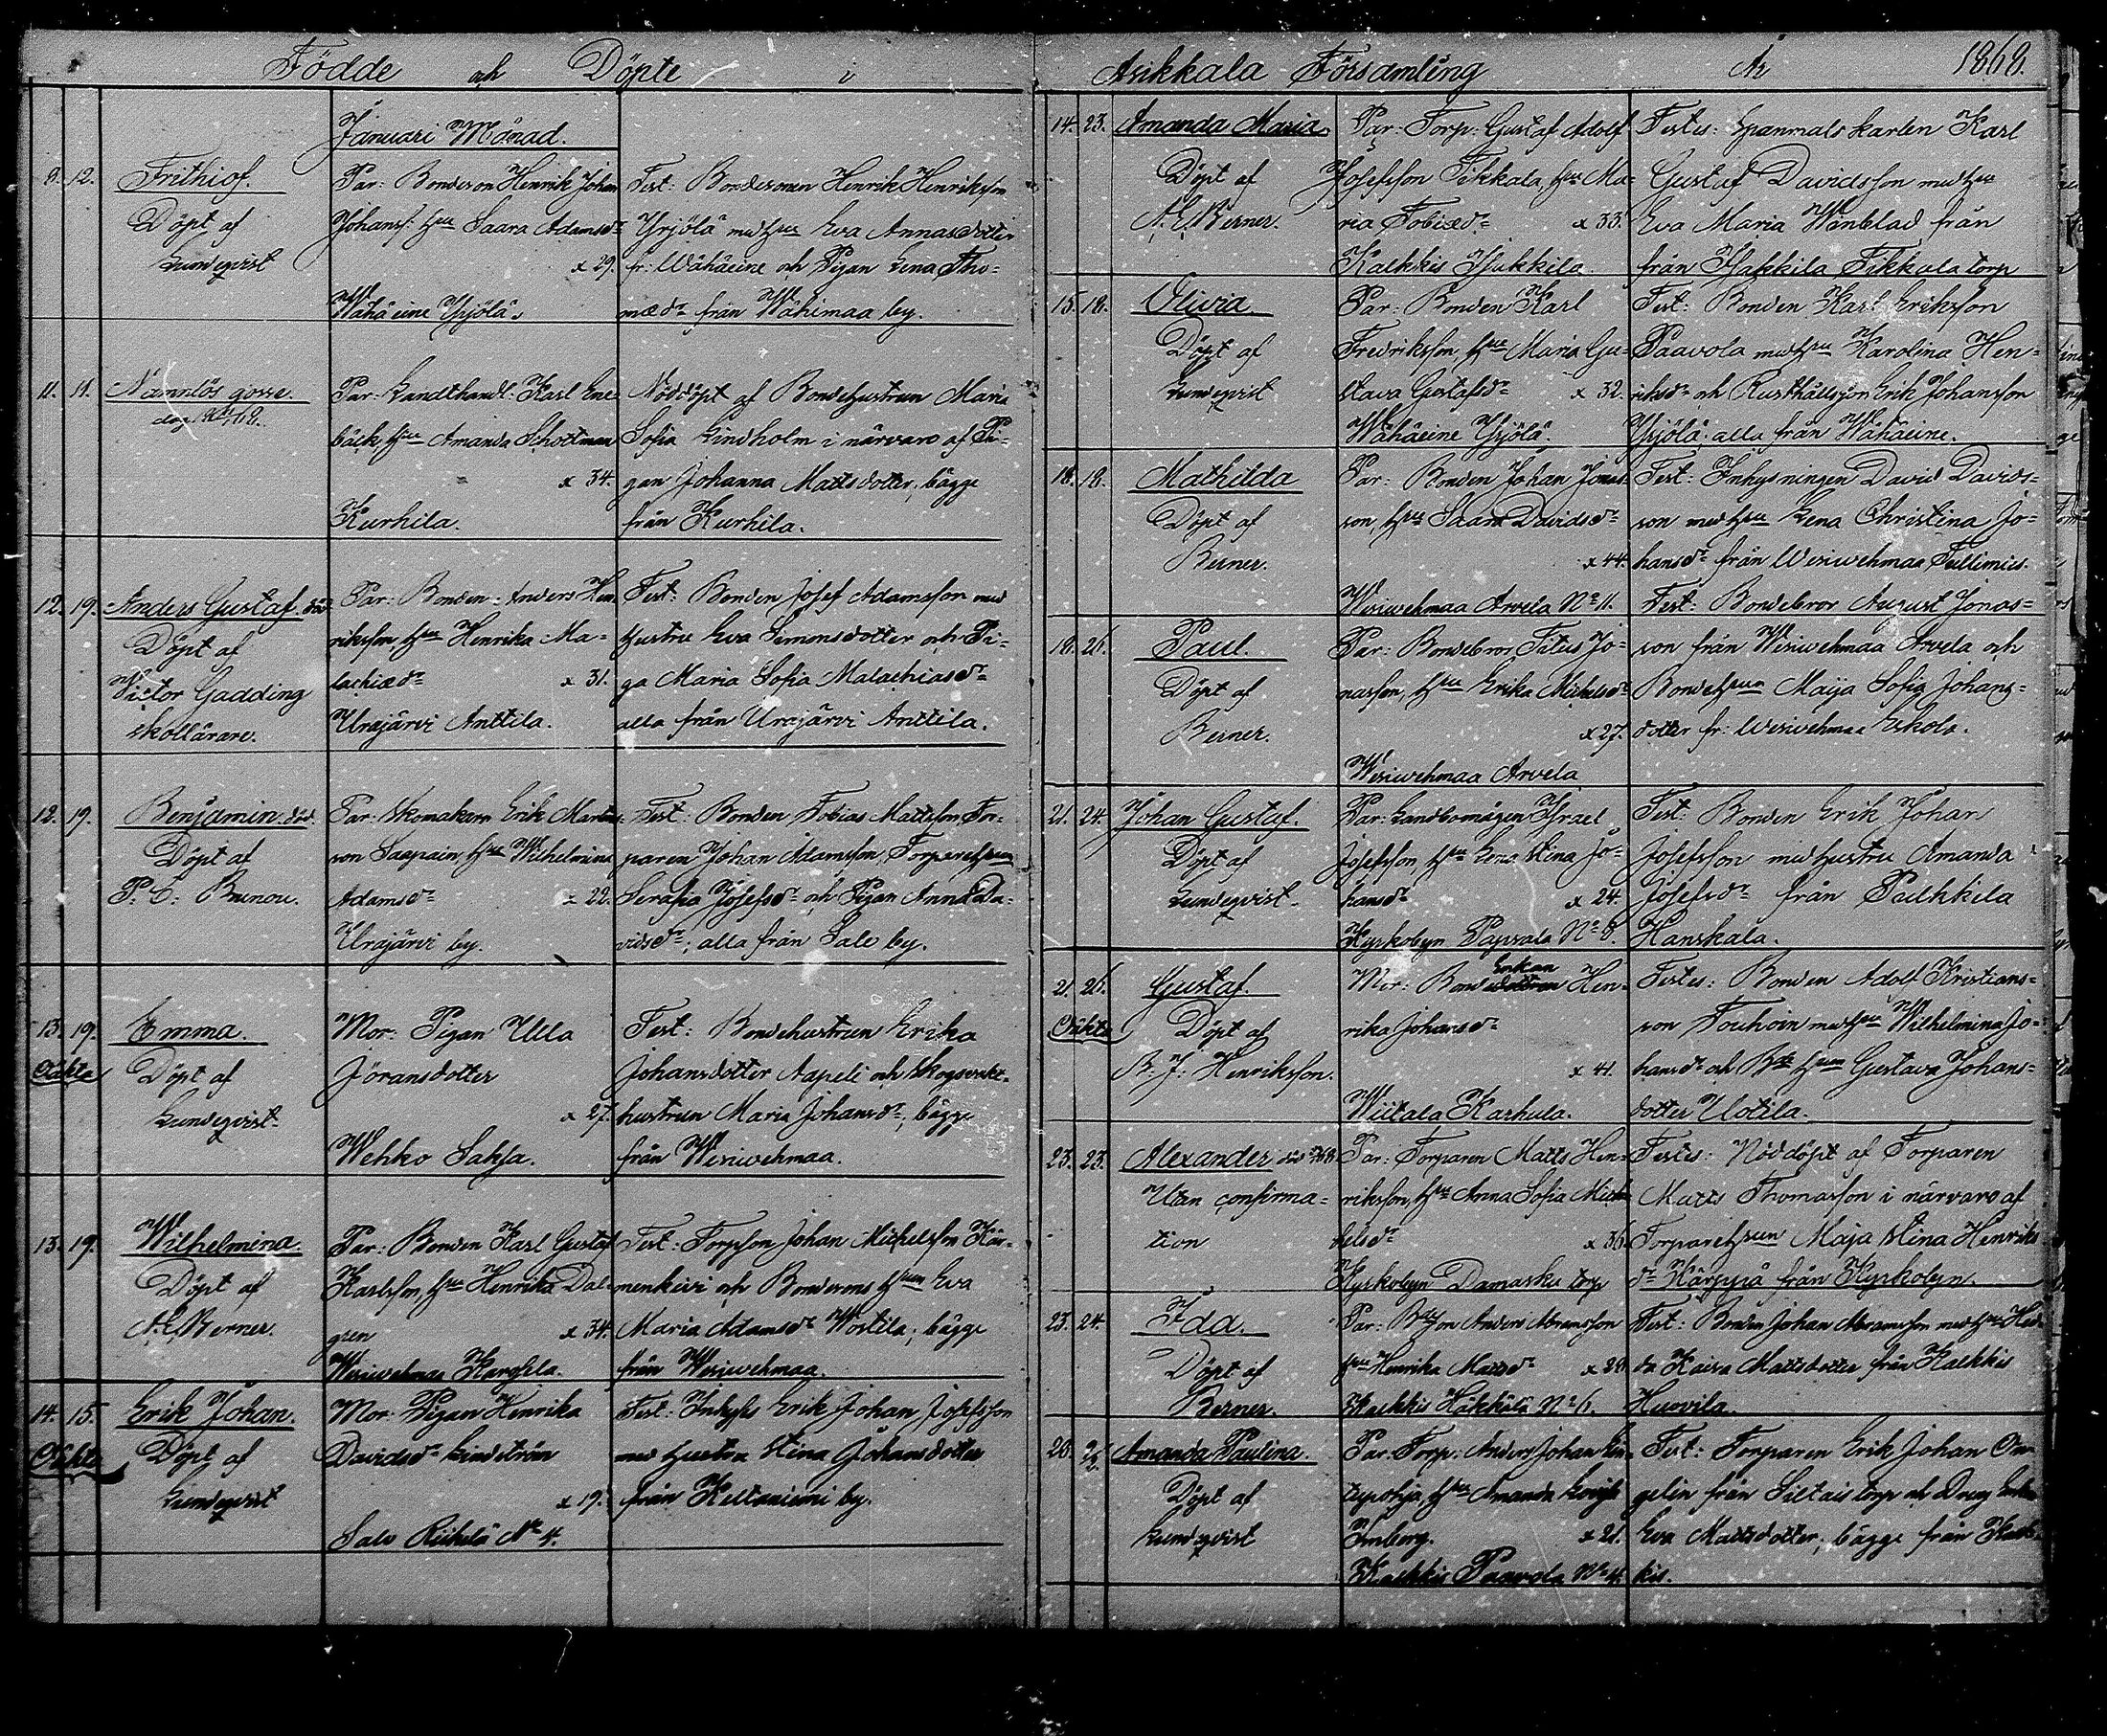 Födde och Döpte i Asikkala Församling År 1868.
Januari Månad.
9. 12. Frithiof.
Döpt af
Lundeqvist
Par: Bondeson Henrik Johan
Johansf: Hru Saara Adamsdr
x 29.
Wähäeine Yrjölä.
Test: Bondesonen Henrik Henriksson
Yrjölä med Hru Eva Annasdotter
fr: Wähäeine och Pigan Lena Tho-
mædr från Wähimaa by.
11. 11. Namnlös gosse.
Par: Landthandl: Karl Ene
bäck, Hru Amanda Schottman
x 34.
Kurhila.
Nöddöpt af Bondehustrun Maria
Sofia Lindholm i närvaro af Pi-
gan Johanna Mattsdotter, bägge
från Kurhila.
12. 19. Anders Gustaf. död
Döpt af
Victor Gadding
skollärare.
Par: Bonden: Anders Hen-
riksson, Hru Henrika Ma-
lachiædr x 31.
Urajärvi Anttila.
Test: Bonden Josef Adamsson med
Hustru Eva Simonsdotter och Pi-
ga Maria Sofia Malachiasdr
alla från Urajärvi Anttila.
12. 19. Benjamin. död.
Döpt af
P. C. Brunou.
Par: Skomakare Erik Martins-
son Saapain, Hru Wilhelmina
Adamsdr x 22.
Urajärvi by.
Test: Bonden Tobias Mattsson, Tor-
paren Johan Adamsson, Torparehrun
Serafia Josefsdr och Pigan Anna Da-
vidsdr; alla från Salo by.
13. 19. Emma.
Oäkta Döpt af
Lundeqvist.
Mor: Pigan Ulla
Jöransdotter
x 27.
Wehko Saksa.
Test: Bondehustrun Erika
Johansdotter Aapeli och Skogsvakt-
hustrun Maria Johansdr; bägge
från Wesiwehmaa.
13. 19. Wilhelmina
Döpt af
A. E. Berner.
Par: Bonden Karl Gustaf
Karlsson, Hru Henrika Dal-
gren x 34.
Wesiwehmaa Kargela.
Test: Torpson Johan Michelsson Kär-
menkivi och Bondesons Hrun Eva
Maria Adamsdr Wostila; bägge
från Wesiwehmaa.
14. 15. Erik Johan.
Oäkta Döpt af
Lundeqvist
Mor: Pigan Henrika
Davidsdr Lindström
x 19.
Salo Riihelä No 4.
Test: Inhyses Erik Johan Josefsson
med Hustru Stina Johansdotter
från Keltaniemi by.
14. 23. Amanda Maria.
Döpt af
A. E. Berner.
Par: Torp: Gustaf Adolf
Josefsson Tikkala, Hru Ma-
ria Tobiædr x 33.
Kalkkis Hakkila.
Testes: Spanmålskarlen Karl
Gustaf Davidsson med Hru
Eva Maria Wenblad från
från Hakkila Tikkala torp
15. 18. Olivia.
Döpt af
Lundeqvist
Par: Bonden Karl
Fredriksson, Hru Maria Gu-
stava Gustafsdr x 32.
Wähäeine Yrjölä.
Test: Bonden Karl Eriksson
Paavola med Hru Karolina Hen-
riksdr och Rusthållsson Erik Johansson
Yrjölä: alla från Wähäeine.
18. 18. Mathilda
Döpt af
Berner.
Par: Bonden Johan Jonas-
son, Hru Saara Davidsdr
x 44.
Wesiwehmaa Arvela No 11.
Test: Inhysningen David Davids-
son med Hru Lena Christina Jo-
hansdr från Wesiwehmaa
18. 26. Paul.
Döpt af
Berner.
Par: Bondebror Titus Jo-
nasson, Hru Erika Michelsdr
x 27.
Wesiwehmaa Arvela
Test: Bondebror August Jonas-
son från Wesiwehmaa Arvela och
Bondehrun Maija Sofia Johans-
dotter fr: Wesiwehmaa Eskola.
21. 24. Johan Gustaf.
Döpt af
Lundeqvist.
Par: Landbomågen Israel
Josefsson, Hru Lena Stina Jo-
hansdr x 24.
Kyrkobyn Papsala No 8.
Test: Bonden Erik Johan
Josefsson med Hustru Amanda
Josefsdr från Pulkkila
Hanskala.
21. 26. Gustaf.
Oäkta Döpt af
B. J. Henriksson.
Mor: Bonde Enkan Hen-
rika Johansdr
x 41.
Wiitala Karhula.
Testes: Bonden Adolf Kristians-
son Touhoin med Hru Wilhelmina Jo-
hansdr och Bde Hrun Gustava Johans-
dotter Uotila.
23. 23. Alexander död
Utan confirma-
tion
Par: Torparen Matts Hen-
riksson, Hru Anna Sofia Mich-
helsdr x 36
Kyrkobyn Damasku torp
Testes: Nöddöpt af Torparen
Matts Thomasson i närvaro af
Torparehrun Maja Stina Henriks
dr Kärppä från Kyrkobyn.
23. 24. Ida.
Döpt af
Berner.
Par: Bdeson Anders Abramsson
Hru Henrika Mattsdr x 28.
Kalkkis Häkkilä No 6.
Test: Bonden Johan Abramsson med Hru Hed-
da Kaisa Mattsdotter från Kalkkis
Huovila.
26. Amanda Paulina.
Döpt af
Lundeqvist
Par: Torp: Anders Johan Lin-
tupohja, Hru Amanda Lovisa
Imberg. x 21.
Kalkkis Paavola No 4.
Test: Torparen Erik Johan En-
gelin från Siltais torp och Dreng Enkan
Eva Mattsdotter; bägge från Kalk-
kis.